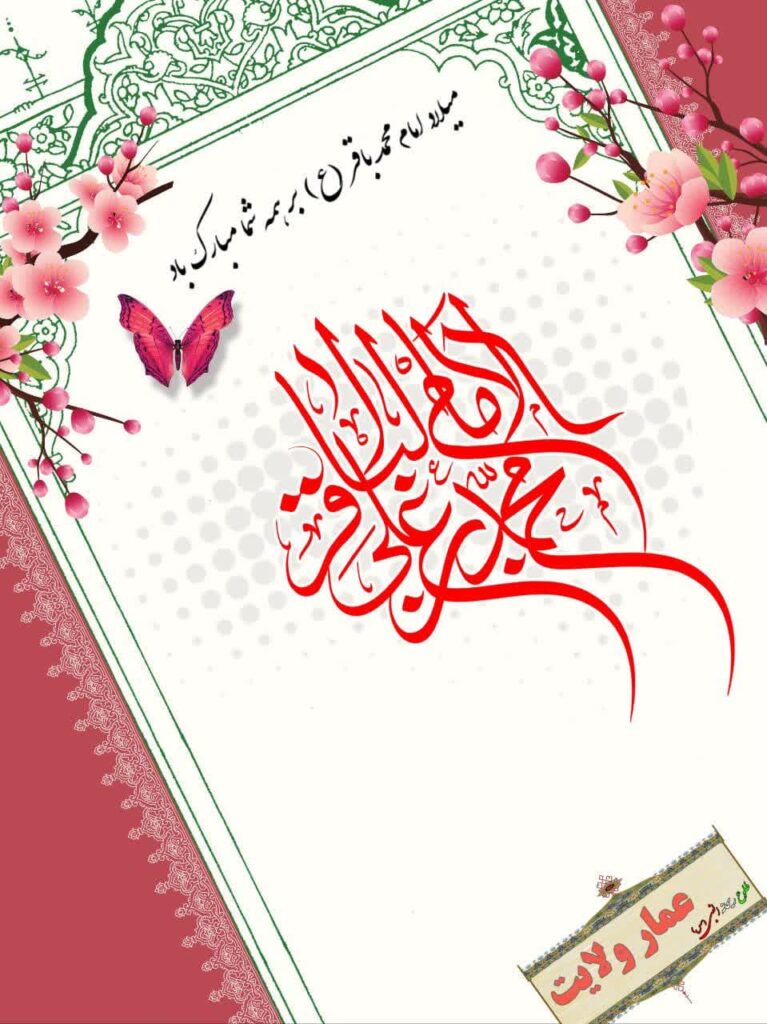 میلاد امام محمد باقر (ع) بر همه شما مبارک باد
الامام الباقر
محمد بن علی ع
عمار ولایت